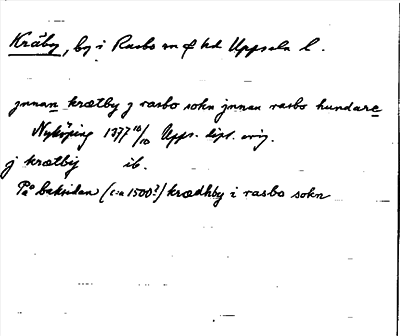 Kräby, by i Rasbo sn of hd Uppsala l.
jnnan krætby j rasbo sokn jnnan rasbo hundare
Nyköping 1377 10/10 Upps. dipl. orig.
j krætby ib.
På baksidan (c:a 1500?) krædhby i rasbo sokn